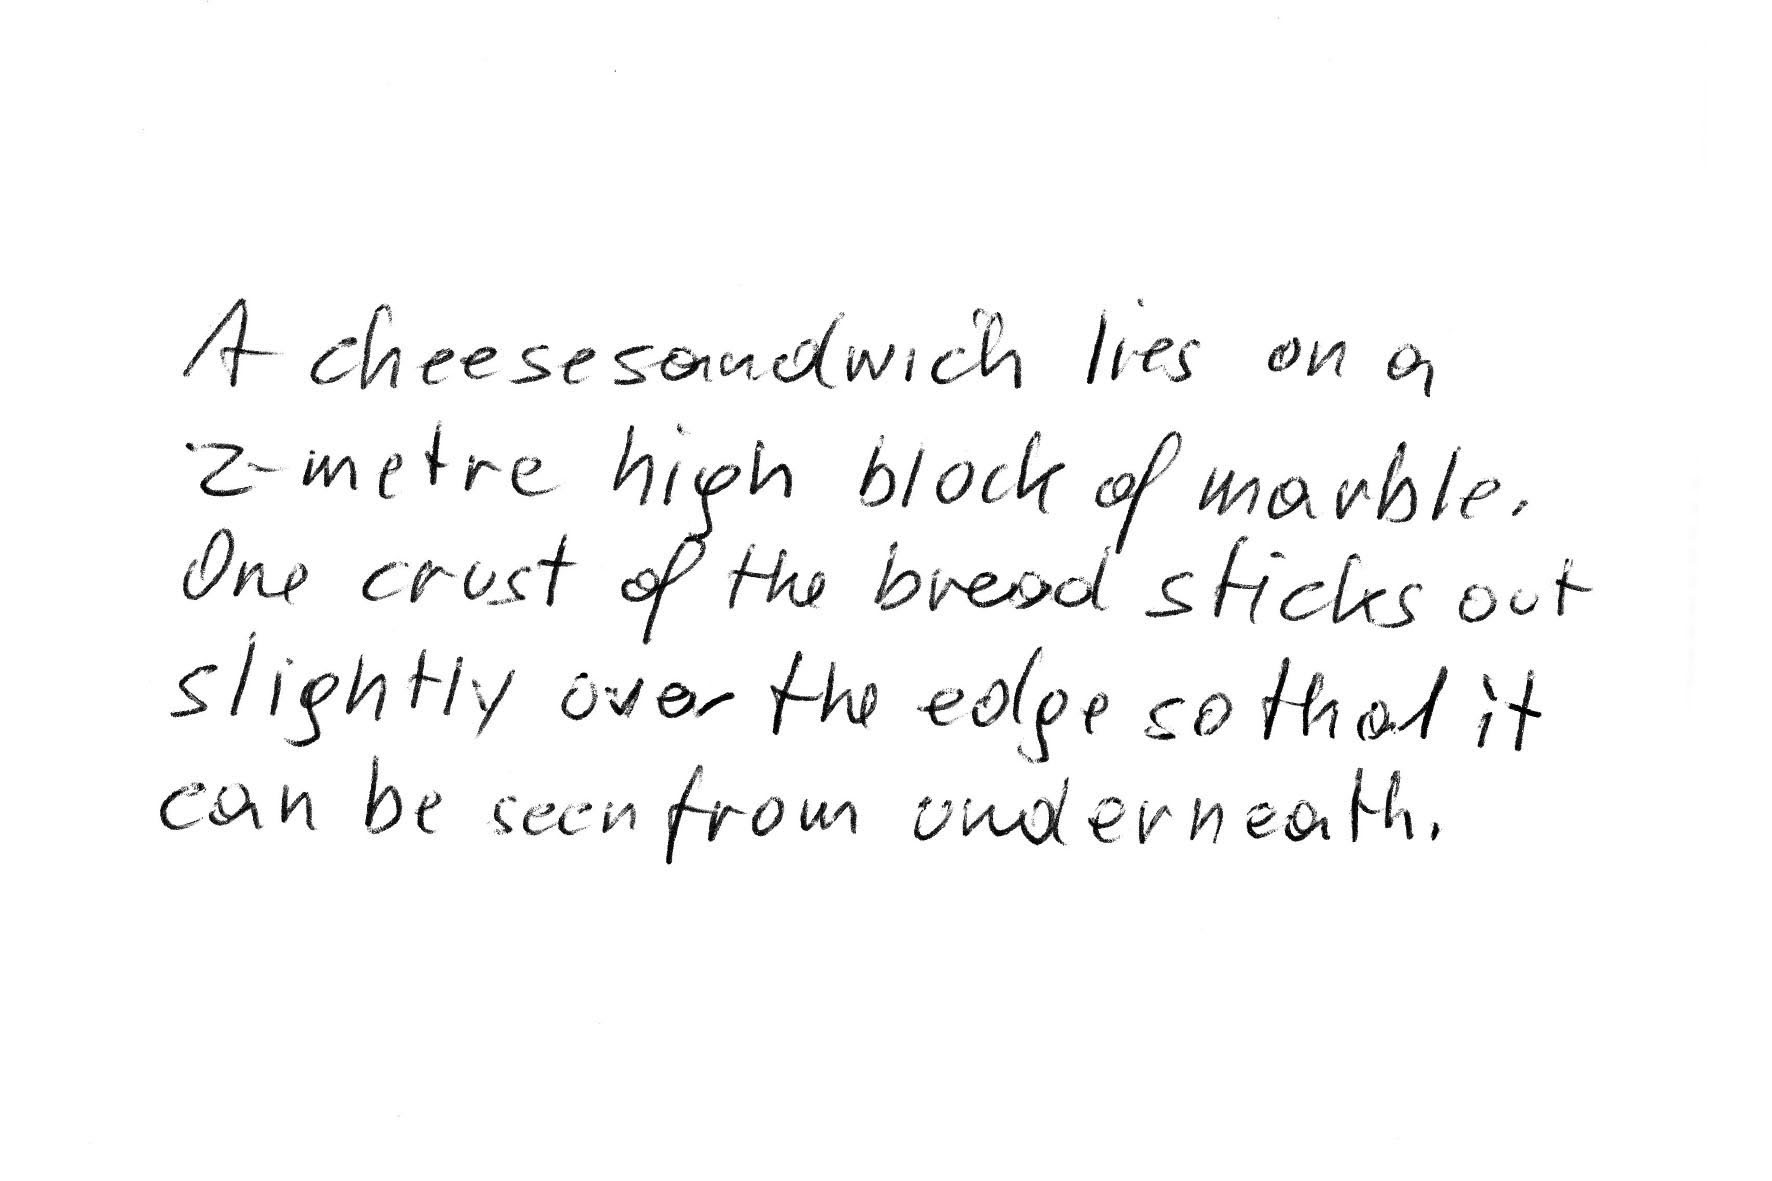 A cheesesandwich lies on a
2-metre high block of marble.
One crust of the bread sticks out
slightly over the edge so that it
can be seen from underneath.